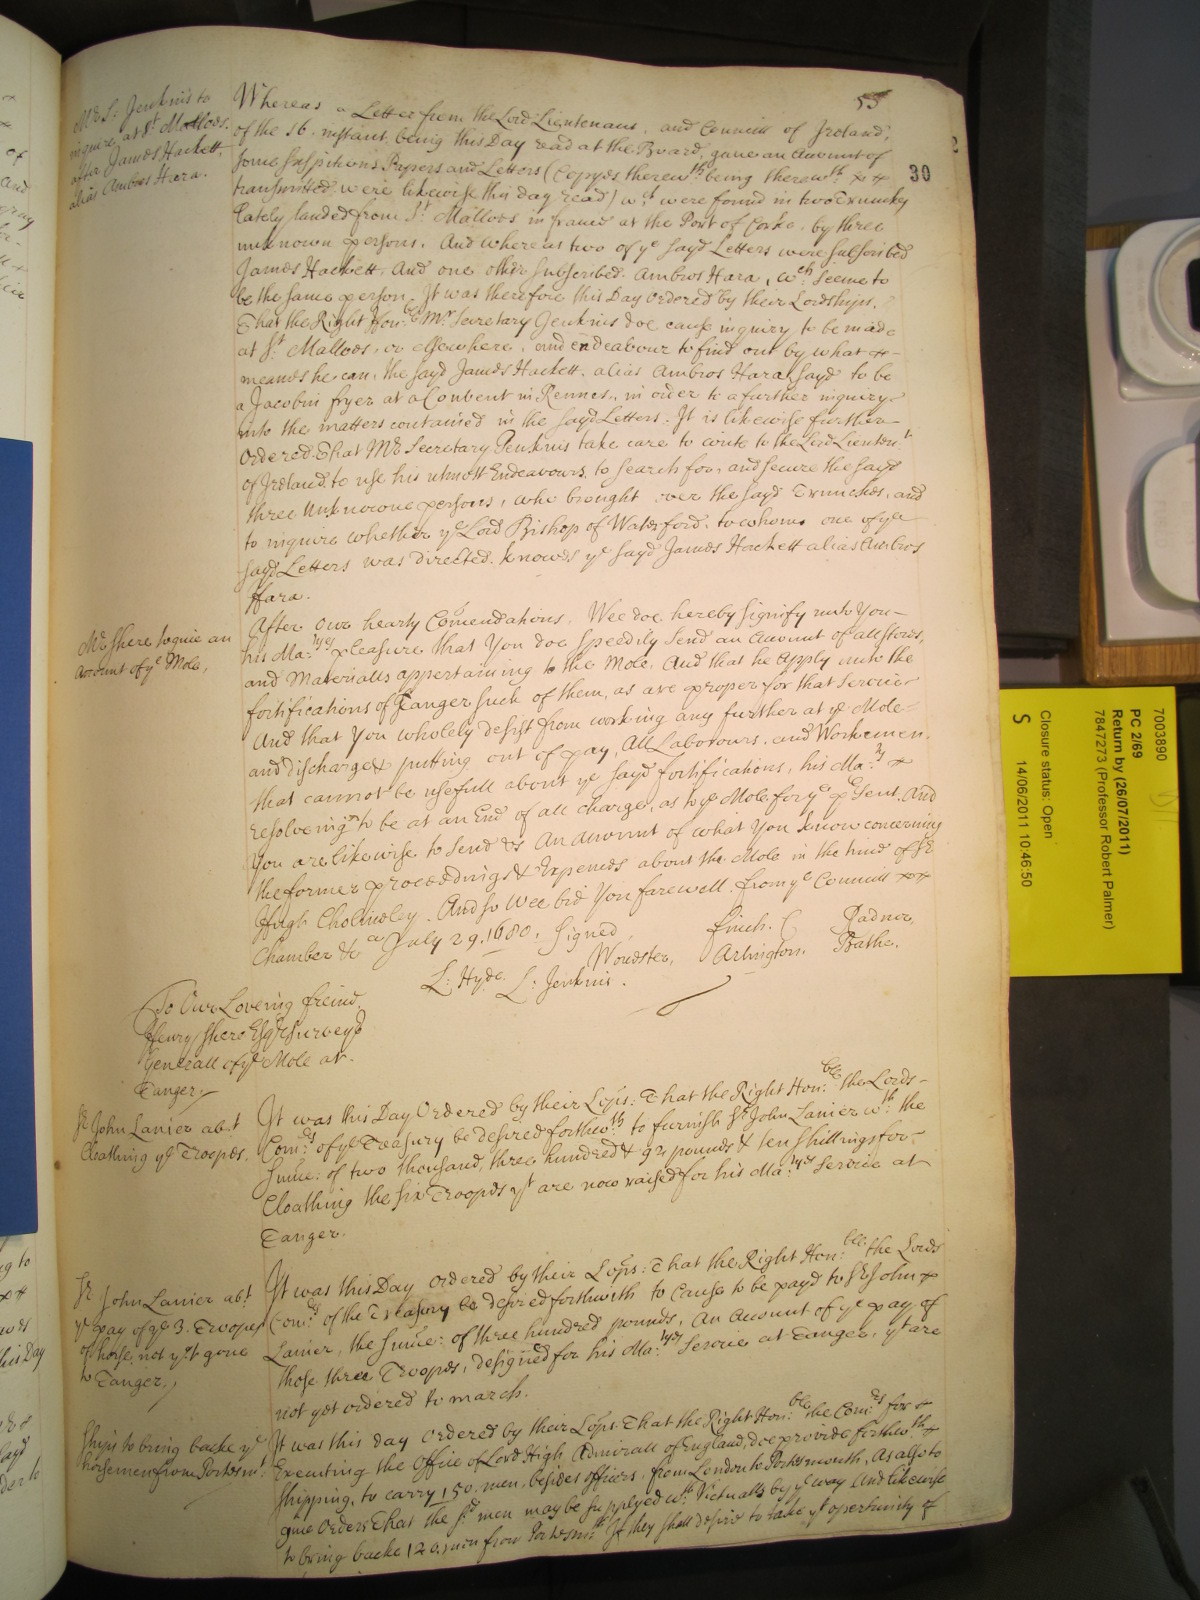 55
30
Mr. S. Jenkins to
inquire at St. Mallos.
after James Hackett
alias Ambros Hara.
Whereas a Letter from the Lord Lieutenant, and Councill of Ireland,
of the 16. instant, being this Day read at the Board, gave an Account of
some suspitious Papers and Letters (Copyes therew.th being therew.th
transmitted were likewise this day read) w.ch were found in two Trunckes
Lately landed from St. Mallos in france at the Port of Corke, by three
unknown persons. And whereas two of ye sayd Letters were subscribed
James Hackett. And one other subscribed. Ambros Hara, w.ch seeme to
be the same person. It was therefore this Day Ordered by their Lordships.
That the Right Hon.ble Mr. Secretary Jenkins doe cause inquiry to be made
at St. Mallos, or elsewhere, and endeavour to find out by what
meanes he can, the sayd James Hackett. alias Ambros Hara, sayd to be
a Jacobin fryer at a Convent in Rennes, in order to a further inquiry
into the matters contained in the sayd Letters. It is likewise further
Ordered. That Mr. Secretary Jenkins take care to write to the Lord Lieuten.t
of Ireland, to use his utmost Endeavours, to search for, and secure the sayd
three unknowne persons, who brought over the sayd Trunckes, and
to inquire whether ye Lord Bishop of Waterford, to whome one of ye
sayd Letters was directed. knowes ye sayd James Hackett alias Ambros
Hara.
Mr. Shere to give an
account of ye Mole,
After Our hearty Comendations. Wee doe hereby signify unto You
his Ma.tyes pleasure that You doe speedily send an Account of all stores,
and Materialls appertaining to the Mole, And that he Apply unto the
fortifications of Tanger such of them, as are proper for that service
And that You wholely desist from working any further at ye Mole
and discharge & putting out of pay, All Labourours, and Workemen
that cannot be usefull about ye sayd fortifications, his Ma.ty
resolveing to be at an End of all charge, as to ye Mole for ye p.esent. And
You are likewise to send Us An Account of what You know concerning
the former proceedings & Expences about the Mole in the time of Sr.
Hugh Cholmley. And so Wee bid You farewell. from ye Councill
Chamber &ca July 29. 1680. Signed
finch. C Radnor,
Worcester, Arlington. Bathe.
L: Hyde. L: Jenkins.
To Our Loveing freind
Henry Shere Esqr. Survey.r
Generall of ye Mole at
Tanger
Sr. John Lanier ab.t
Cloathing ye Troopes.
It was this Day Ordered by their Lops: That the Right Hon.ble the Lords
Com.rs of ye Treasury be desired forthw.th to furnish Sr. John Lanier w.th the
Sume: of two thousand, three hundred & 92 pounds & ten shillings for
Cloathing the six Troopes yt are now raised for his Ma.tyes Service at
Tanger.
Sr. John Lanier ab.t
ye pay of ye 3. Troopes
of horse, not yet gone
to Tanger.
It was this Day Ordered by their Lops: That the Right Hon.ble the Lords
Com.rs of the Treasury be desired forthwith to Cause to be payd to Sr. John
Lanier, the Sume: of three hundred pounds, on Account of ye pay of
those three Troopes, designed for his Ma.tyes Service at Tanger, yt are
not yet ordered to march.
Ships to bring backe ye
horsemen from Portsm.o
It was this day Ordered by their Lops. That the Right Hon.ble the Com.rs for
Executing the Office of Lord High Admirall of England, doe provide forthw.th
shipping, to carry 150. men, besides officers, from London to Portsmouth, As also to
give Orders That the s.d men may be supplyed w.th Victualls by ye way And likewise
to bring backe 120. men from Portsm.th If they shall desire to take yt opertunity of
7003890
PC 2/69
Return by (26/07/2011)
7847273 (Professor Robert Palmer)
Closure status: Open
S 14/06/2011 10:46:50